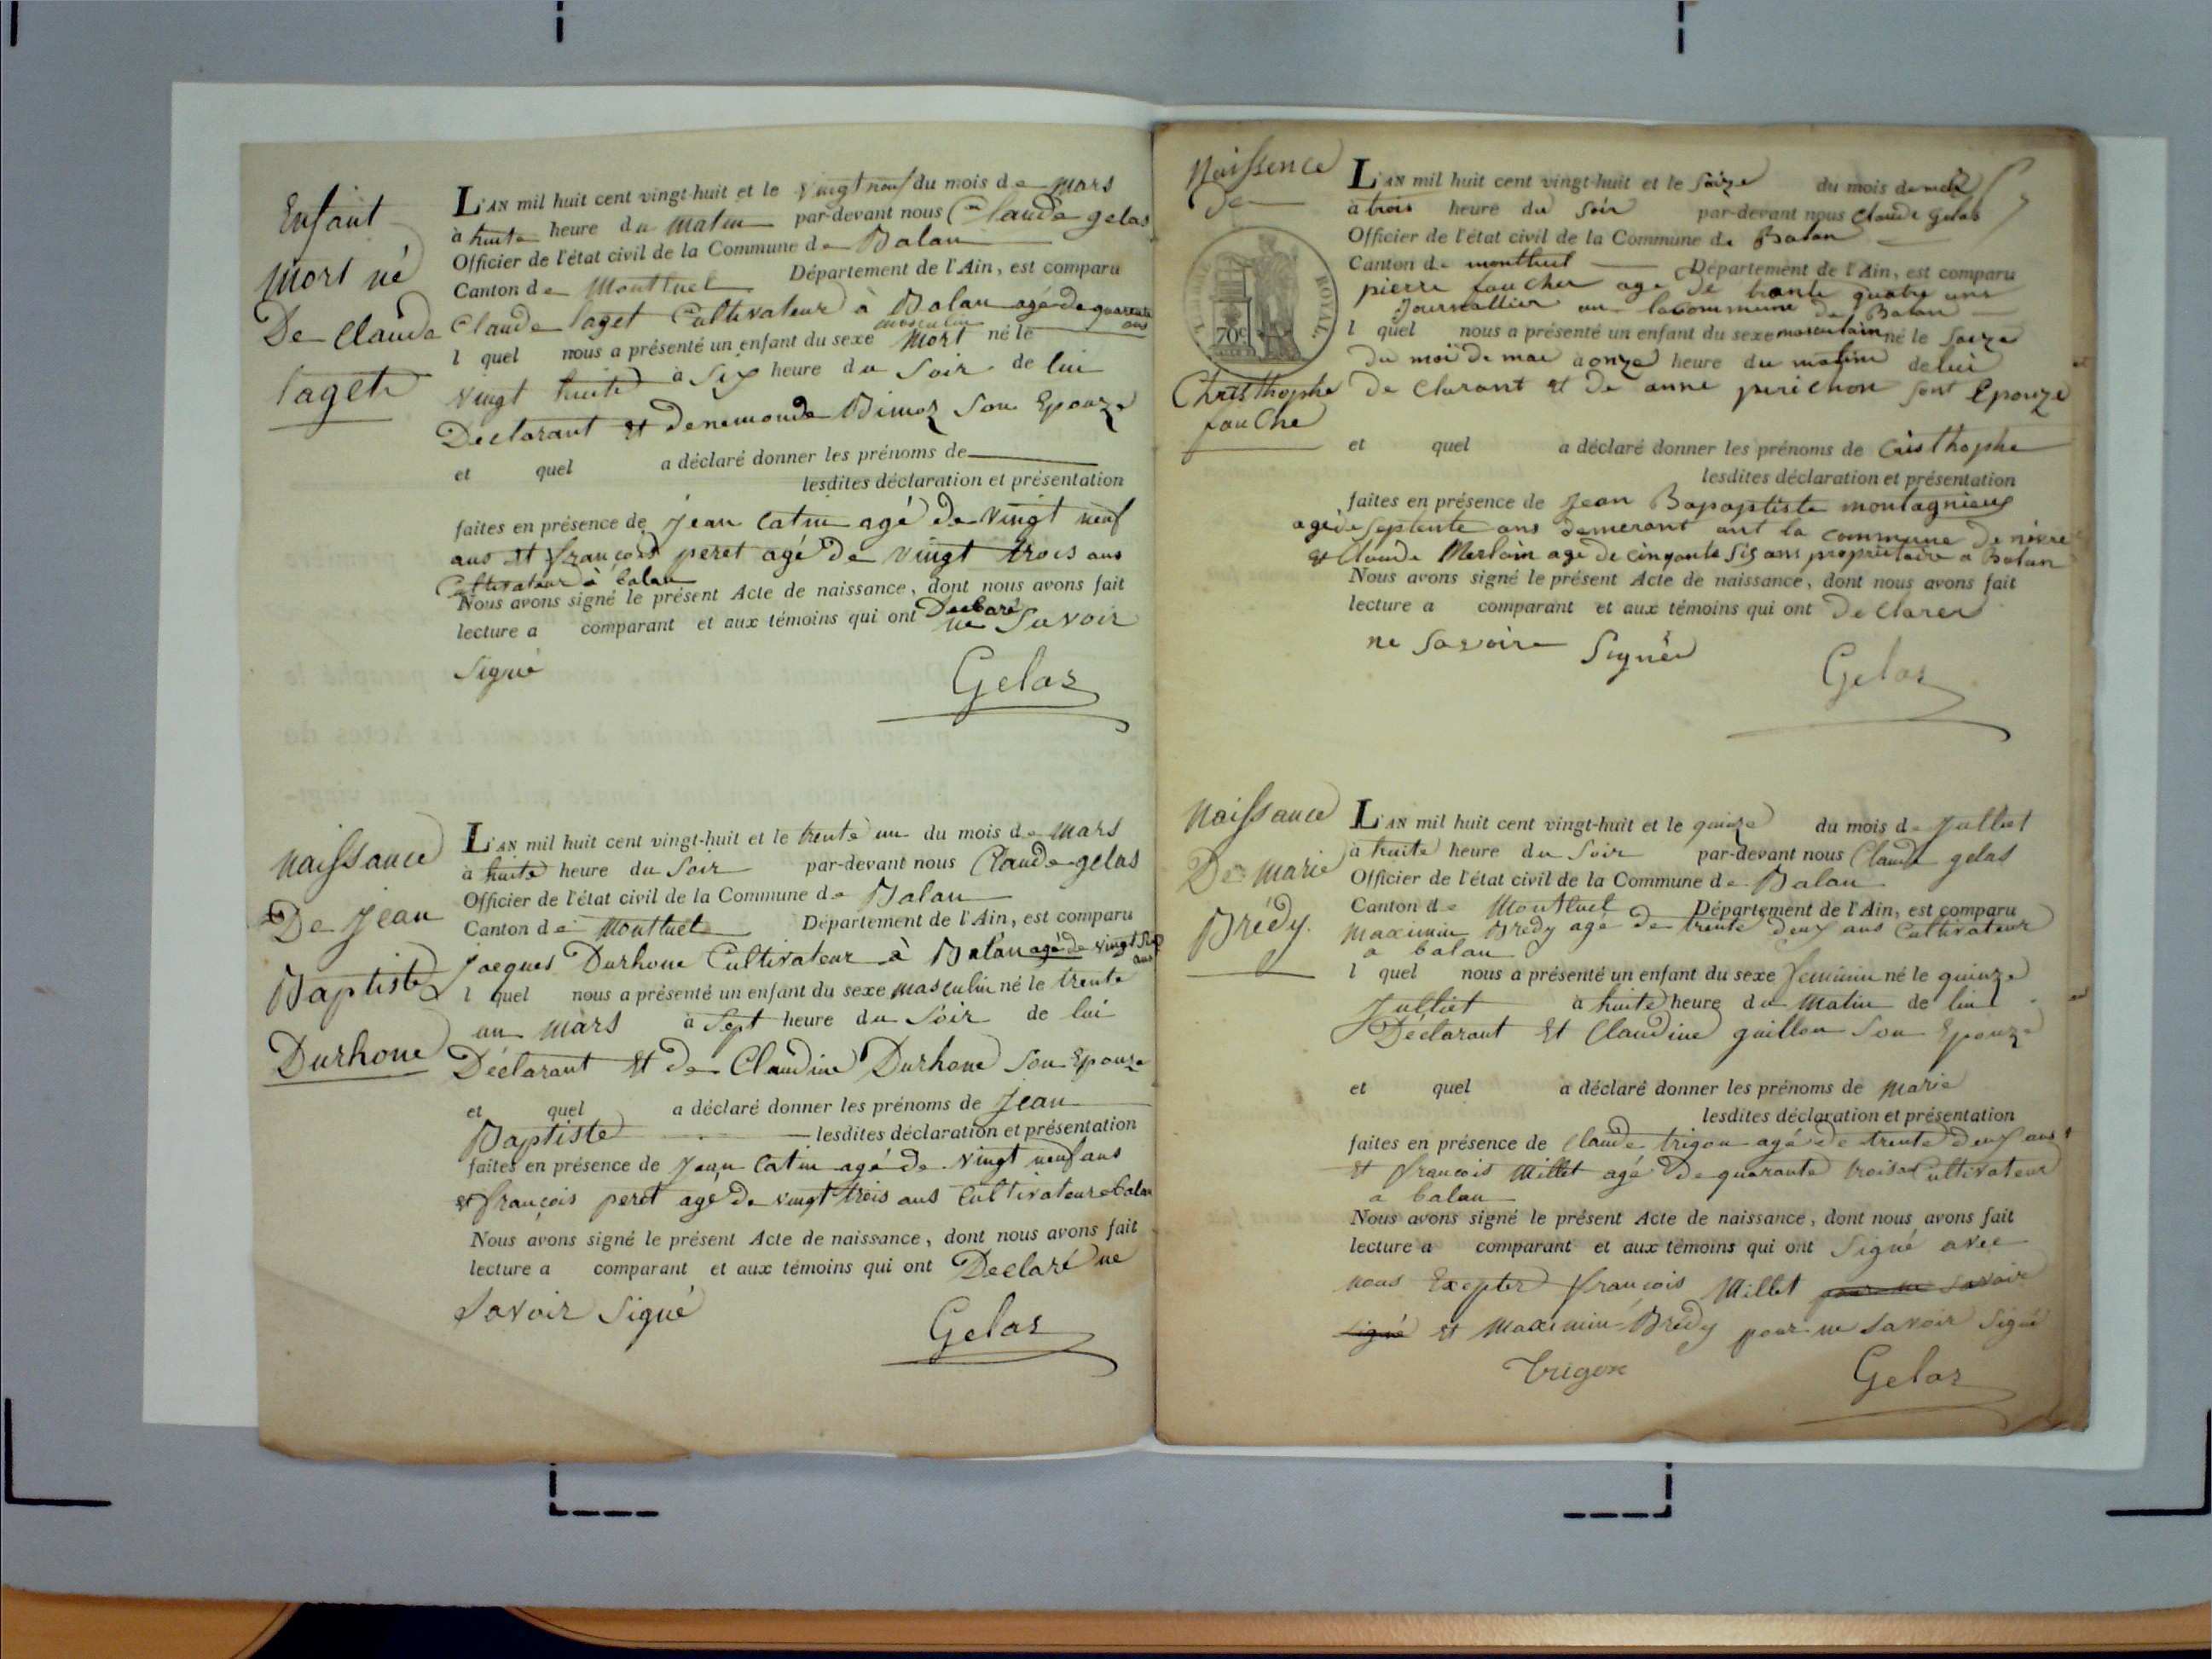 Enfant
mort né
De Claude
Laget
L'AN mil huit cent vingt-huit et le vingt neuf du mois de mars
à huite heure du matin par-devant nous Claude gelas
Officier de l'état civil de la Commune de Balan
Canton de Montluel Département de l'Ain, est comparu
Claude Laget Cultivateur à Balan agé de quarante ans
l quel nous a présenté un enfant du sexe masculin mort né le
vingt huite à Six heure du Soir de lui
Déclarant et denemonde Bimoz Son Epouze
et quel a déclaré donner les prénoms de
lesdites déclaration et présentation
faites en présence de Jean Catin agé de vingt neuf
ans et françois peret agé de vingt trois ans
Cultivateur à balan
Nous avons signé le présent Acte de naissance, dont nous avons fait
lecture a comparant et aux témoins qui ont Declaré ne Savoir
Signé
Gelas
naissance
De Jean
Baptiste
Durhone
L'AN mil huit cent vingt-huit et le trente un du mois de mars
à huite heure du Soir par-devant nous Claude gelas
Officier de l'état civil de la Commune de Balan
Canton de Montluel Département de l'Ain, est comparu
Jacques Durhone Cultivateur à Balan agé de vingt Six ans
l quel nous a présenté un enfant du sexe masculin né le trente
un mars à Sept heure du Soir de lui
Déclarant et de Claudine Durhone Son Epouze
et quel a déclaré donner les prénoms de Jean
Baptiste lesdites déclaration et présentation
faites en présence de Jean Catin agé de vingt neuf ans
et françois peret agé de vingt trois ans Cultivateur a balan
Nous avons signé le présent Acte de naissance, dont nous avons fait
lecture a comparant et aux témoins qui ont Declaré ne
Savoir Signé
Gelas
Naissence
de
ROYAL
70c
Christhophe
fauche
L'AN mil huit cent vingt-huit et le saize du mois de mai
à trois heure du soir par-devant nous Claude Gelas
Officier de l'état civil de la Commune de Balan
Canton de montluel Département de l'Ain, est comparu
pierre faucher age de trante quatre ans
Journallier au lacommune de Balan
l quel nous a présenté un enfant du sexe masculain né le saize
du moi de mai à onze heure du matin de lui
de Clarant et de anne perichon sont Epouze
et quel a déclaré donner les prénoms de Cristhophe
lesdites déclaration et présentation
faites en présence de Jean Bapaptiste montagnieux
agé de Septente ans demerant ant la commune de nivre
et Claude Merloin agé de cinqante Sis ans proprietaire a Balan
Nous avons signé le présent Acte de naissance, dont nous avons fait
lecture a comparant et aux témoins qui ont de Clarer
ne Savoire Signér
Gelas
naissance
De marie
Brédy.
L'AN mil huit cent vingt-huit et le quinze du mois de Julliet
à huite heure du Soir par-devant nous Claude gelas
Officier de l'état civil de la Commune de Balan
Canton de Montluel Département de l'Ain, est comparu
maximin Brédy agé de trente deux ans Cultivateur
a balan
l quel nous a présenté un enfant du sexe feminin né le quinze
Julliet à huite heure du matin de lui
Déclarant Et Claudine guillon Son Epouze
et quel a déclaré donner les prénoms de marie
lesdites déclaration et présentation
faites en présence de Claude trigon agé de trente deux ans
et françois Millet agé de quarante trois ans Cultivateur
a balan
Nous avons signé le présent Acte de naissance, dont nous avons fait
lecture a comparant et aux témoins qui ont Signé avec
nous Exepter françois Millet pour ne savoir
signé et maximin Brédy pour ne savoir Signé
Trigon
Gelas